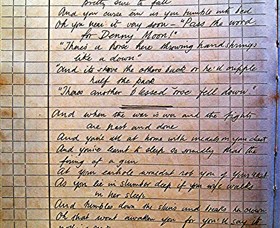 sure to fall
And you curse him as you tumble into bed
Oh you hear it very soon - "Pass the word
for Denny Moon!"
"There's a horse here throwing handsprings
like a clown"
And it's shove the others back or he'll
half the pack
"There's another blessed 'orse fell down"
And when the war is over and the fights
are past and done
And you're all at home with on your chest
And you've learnt to sleep so soundly that the
firing of a gun
At your would not of your rest
As you lie in slumber deep if your wife walks
in her sleep
And tumbles down the stairs and breaks her crown
Oh that won't awaken you for you'll say it